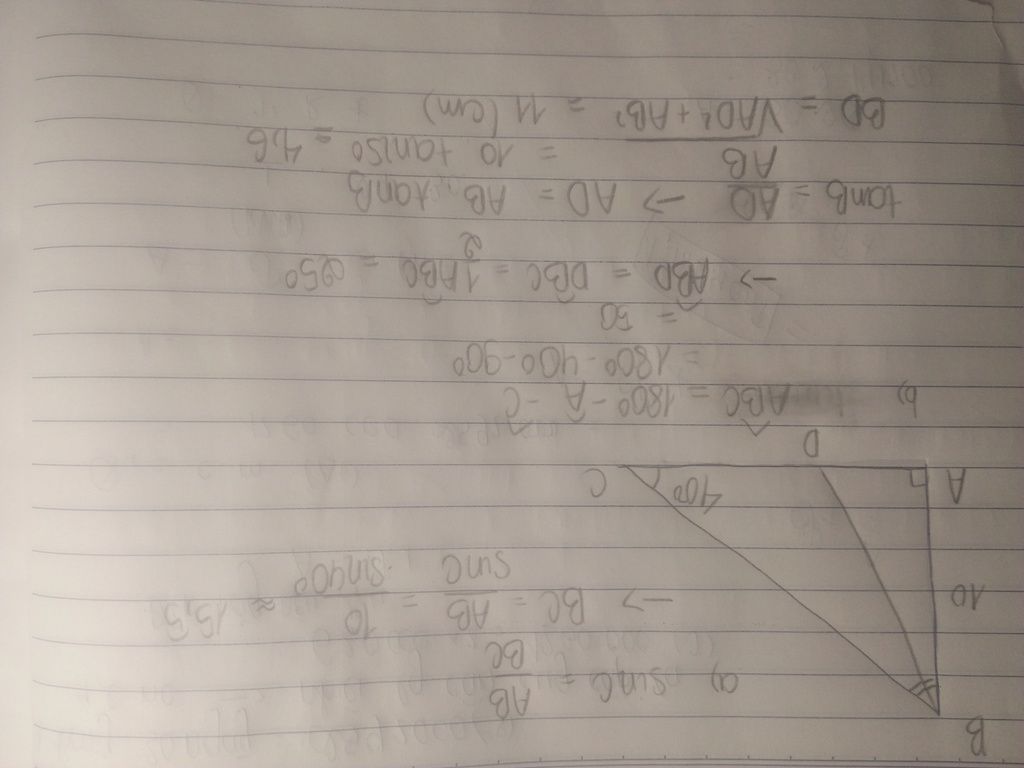 B
a) sinC = AB/BC
10
-> BC = AB/sinC = 10/sin40° ≈ 15,5
A
40°
C
D
b) ABC = 180° - Â - Ĉ
= 180° - 40° - 90°
= 50
-> ABD = DBC = 1/2 ABC = 25°
tanB = AD/AB -> AD = AB. tanB
= 10 tan25° = 4,6
BD = √AD² + AB² = 11 (cm)